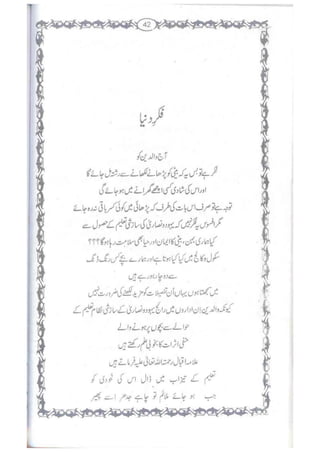 42
فکرِ دنیا
آج والدین کو
فکر ہے تو بس یہ کہ بیٹی کو پڑھانے لکھانے سے رشتہ مل جائے گا
اور اس کی شادی کسی اچھے گھرانے میں ہو جائے گی
توجہ ہے تو صرف اس بات کی طرف کہ پڑھائی میں کوئی کسر باقی نہ رہ جائے
مگر افسوس یہ فکر نہیں کہ یہود و نصاریٰ کی سازشی تعلیم کے حصول سے
کیا ہماری بہن، بیٹی کا ایمان اور حیا بھی سلامت رہا ہوگا؟؟؟
سکول و کالج میں کیا کیا ہوتا ہے اور ہمارے بچے کس رنگ ڈھنگ
سے دوچار ہو رہے ہیں
میں سمجھتا ہوں یہاں اُن تفصیلات کو مزید لکھنے کی ضرورت نہیں
کیونکہ والدین ان اداروں میں رائج یہود و نصاریٰ کے سازشی نظامِ تعلیم کے
حوالے سے بچوں پر ہونے والے
منفی اثرات کا بخوبی علم رکھتے ہیں
علامہ اقبال رحمۃ اللہ تعالیٰ علیہ فرماتے ہیں
تعلیم کے تیزاب میں ڈال اس کی خودی کو
جب ہو جائے ملائم تو چاہے جدھر اسے پھیر